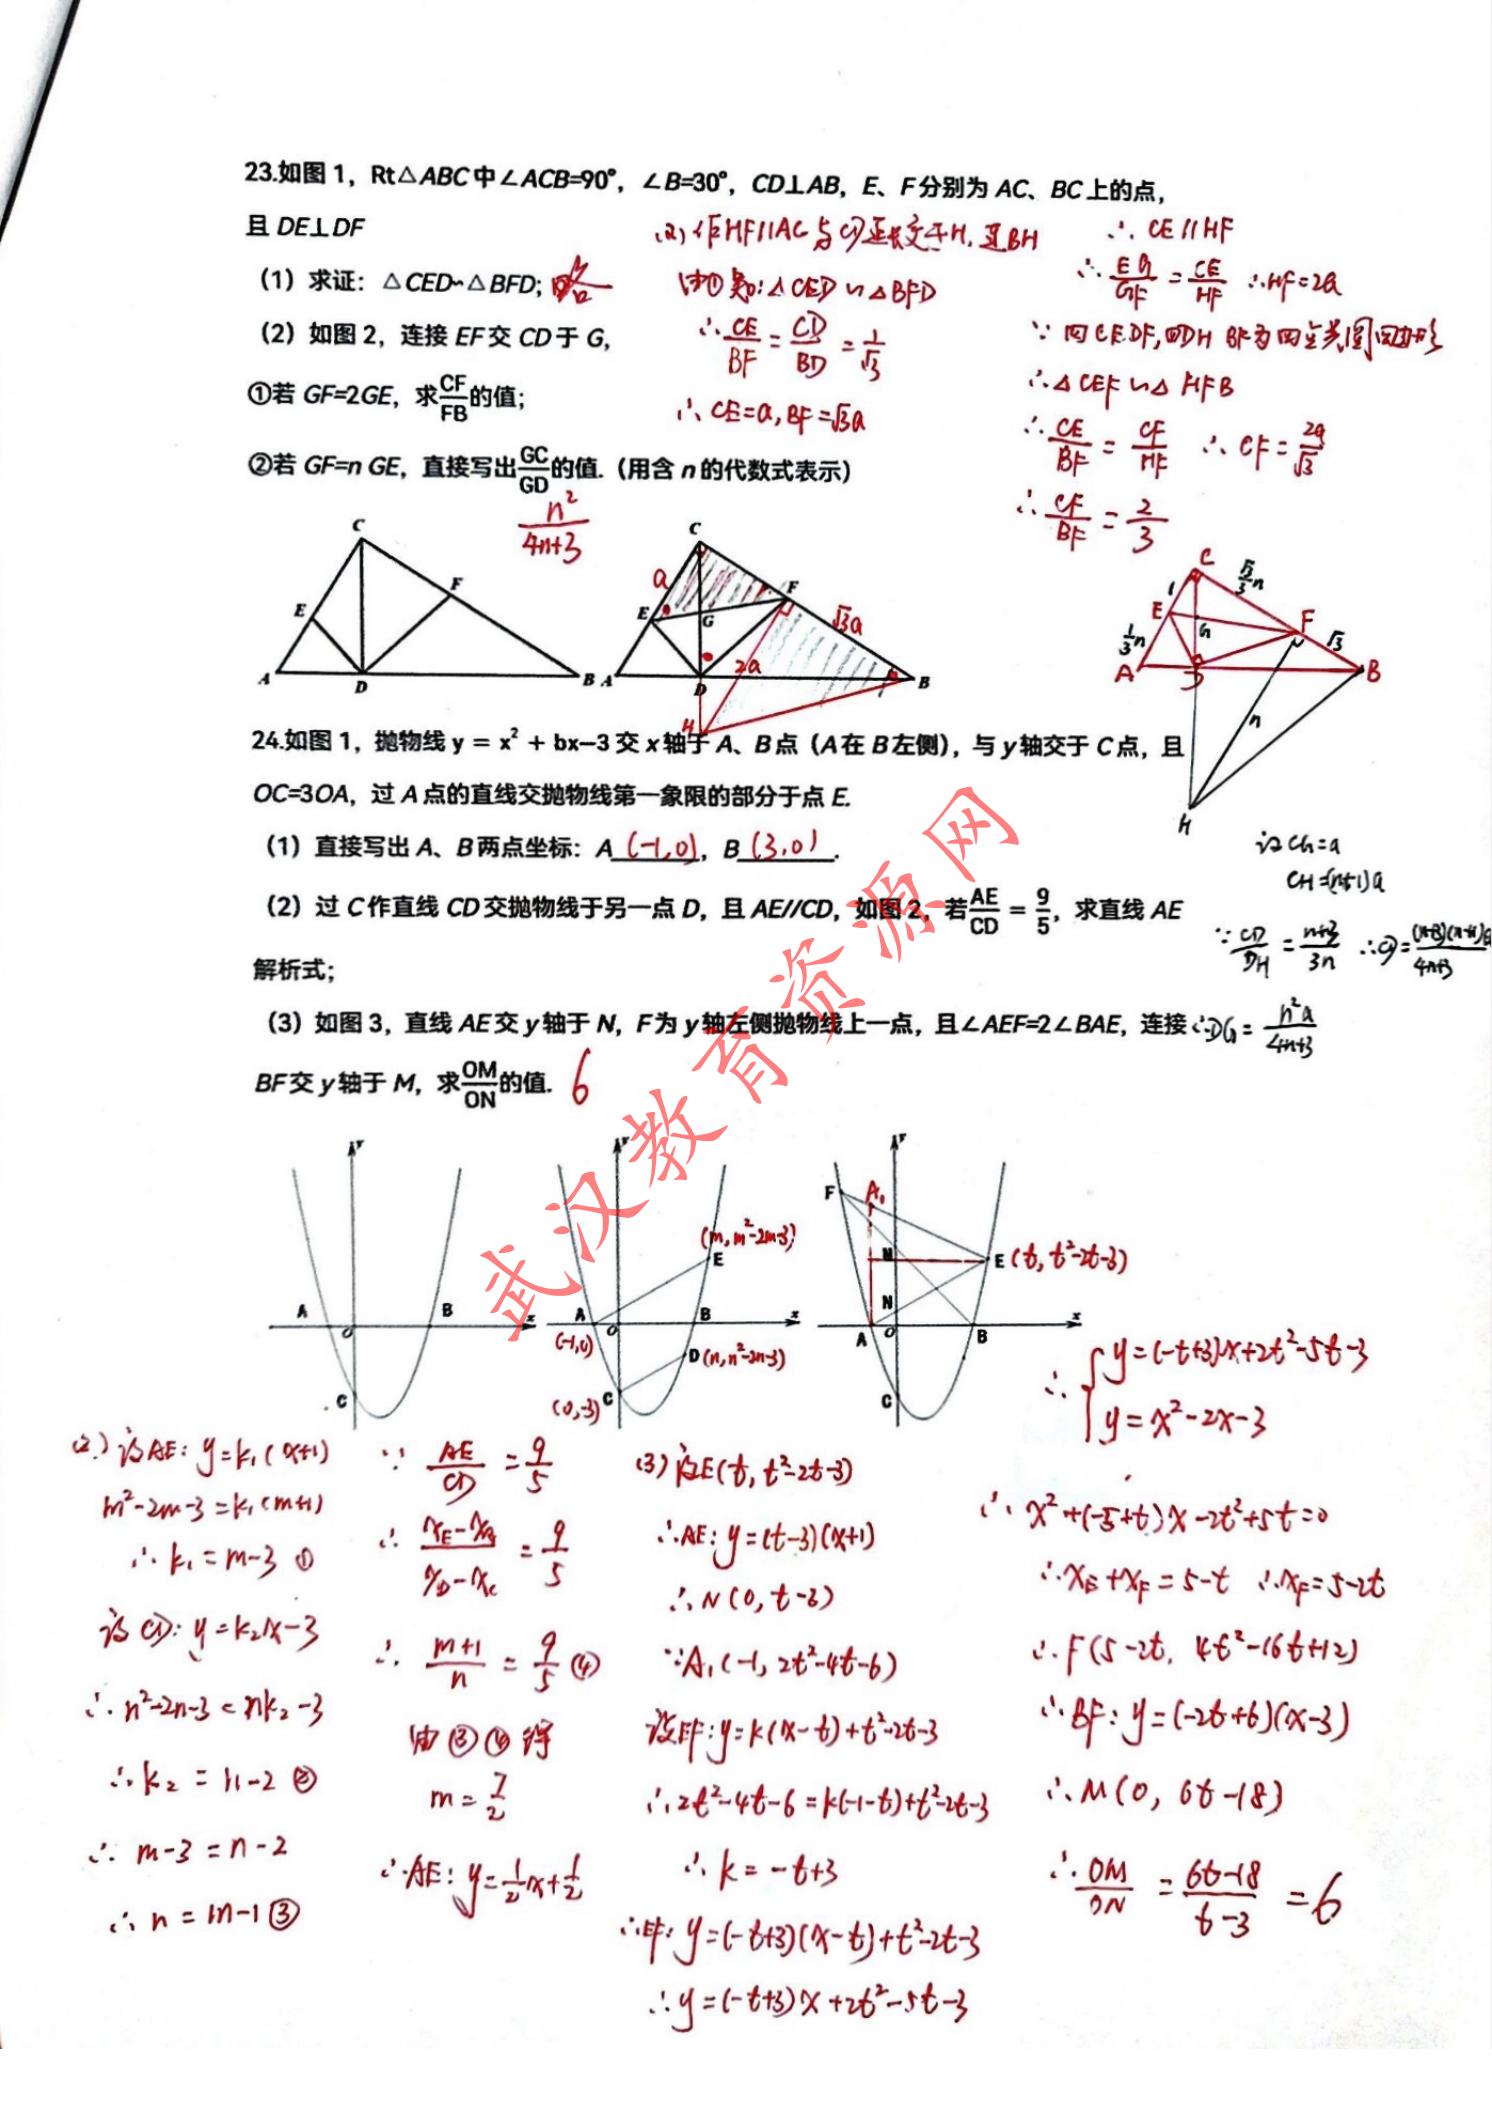 23.如图1，Rt△ABC中∠ACB=90°，∠B=30°，CD⊥AB，E、F分别为AC、BC上的点，
且DE⊥DF
（1）求证：△CED∽△BFD；略
（2）如图2，连接EF交CD于G，
①若GF=2GE，求CF/FB的值；
②若GF=n GE，直接写出GC/GD的值.（用含n的代数式表示）
n²/(4n+3)
(2)作HF//AC与CD延长交于H,连BH
由①知:△CED∽△BFD
∴CE/BF=CD/BD=1/√3
∴CE=a,BF=√3a
∴CE//HF
∴EG/GF=CE/HF ∴HF=2a
∵四CEDF,四DHBF为四点共圆四边形
∴△CEF∽△HFB
∴CE/BF=CF/HF ∴CF=2a/√3
∴CF/BF=2/3
C
E
F
A
D
B
C
a
E
G
F
√3a
2a
A
D
B
H
C
1
√3/3 n
E
G
F
1/3 n
√3
A
D
B
n
H
24.如图1，抛物线y = x² + bx−3交x轴于A、B点（A在B左侧），与y轴交于C点，且
OC=3OA，过A点的直线交抛物线第一象限的部分于点E.
（1）直接写出A、B两点坐标：A(-1,0)，B(3,0).
（2）过C作直线CD交抛物线于另一点D，且AE//CD，如图2，若AE/CD = 9/5，求直线AE
解析式；
（3）如图3，直线AE交y轴于N，F为y轴左侧抛物线上一点，且∠AEF=2∠BAE，连接
BF交y轴于M，求OM/ON的值. 6
设CG=a
CH=(n+1)a
∵CD/DH=(n+3)/3n ∴CD=(n+3)(n+1)a/(4n+3)
∴DG=n²a/(4n+3)
武汉教育资源网
y
A
B
O
x
C
y
(m,m²-2m-3)
E
A
B
O
x
(-1,0)
D(n,n²-2n-3)
(0,-3)C
y
F
A₁
M
E(t,t²-2t-3)
N
A
O
B
x
C
(2)设AE:y=k₁(x+1)
m²-2m-3=k₁(m+1)
∴k₁=m-3 ①
设CD:y=k₂x-3
∴n²-2n-3=nk₂-3
∴k₂=n-2 ②
∴m-3=n-2
∴n=m-1③
∵AE/CD=9/5
∴(x_E-x_A)/(x_D-x_C)=9/5
∴(m+1)/n=9/5④
由③④得
m=7/2
∴AE:y=1/2x+1/2
(3)设E(t,t²-2t-3)
∴AE:y=(t-3)(x+1)
∴N(0,t-3)
∵A₁(-1,2t²-4t-6)
设EF:y=k(x-t)+t²-2t-3
∴2t²-4t-6=k(-1-t)+t²-2t-3
∴k=-t+3
∴EF:y=(-t+3)(x-t)+t²-2t-3
∴y=(-t+3)x+2t²-5t-3
∴{y=(-t+3)x+2t²-5t-3
y=x²-2x-3
∴x²+(-5+t)x-2t²+5t=0
∴x_E+x_F=5-t ∴x_F=5-2t
∴F(5-2t,4t²-16t+12)
∴BF:y=(-2t+6)(x-3)
∴M(0,6t-18)
∴OM/ON=(6t-18)/(t-3)=6